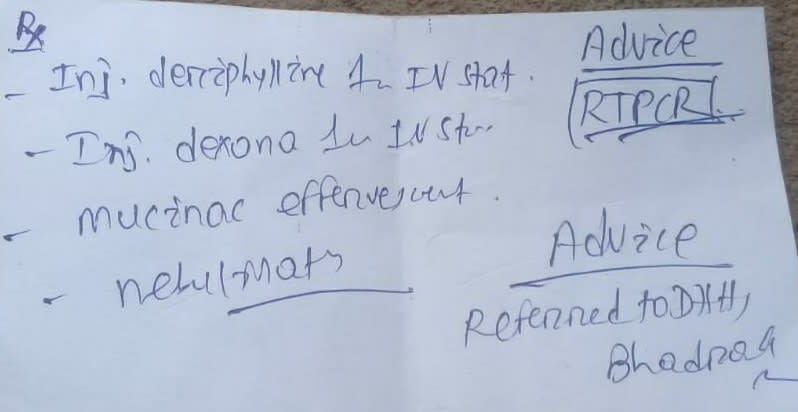 Rx
- Inj. derriphylline 1u IV stat.
- Inj. dexona 1u IV st..
- mucinac effervescent.
-
Advice
RTPCR
Advice
Referred to DHH,
Bhadrak